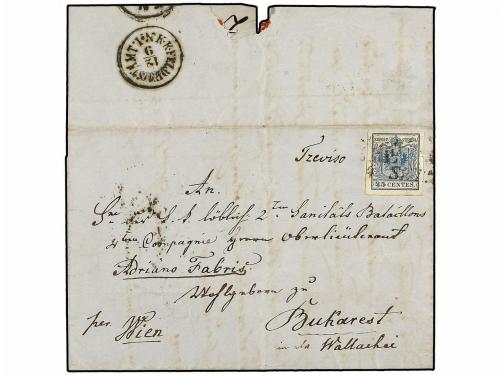 K.K. FELDPOSTAMT No I
12/6
Treviso
45 CENTES.
An.
Sne der k. k. löblich. 2ten Sanitäts Bataillons
4ten Compagnie Herrn Oberlieutenant
Adriano Fabris
Wohlgeboren zu
per. Wien
Bukarest
in der Wallachei